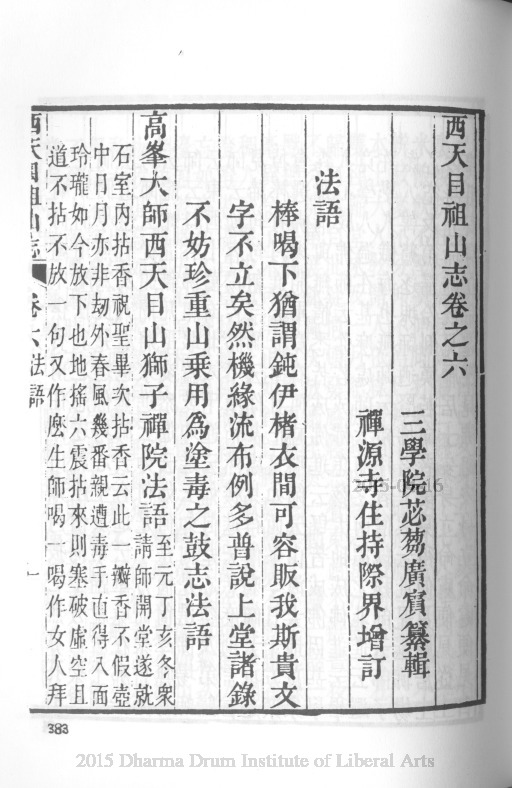 西天目祖山志卷之六
三學院苾蒭廣賓纂輯
禪源寺住持際界增訂
法語
棒喝下猶謂鈍伊楮衣間可容販我斯貴文
字不立矣然機緣流布例多普說上堂諸錄
不妨珍重山乘用爲塗毒之鼓志法語
高峯大師西天目山獅子禪院法語至元丁亥冬衆
請師開堂遂就
石室內拈香祝聖畢次拈香云此一瓣香不假壺
中日月亦非劫外春風幾番親遭毒手直得入面
玲瓏如今放下也地搖六震拈來則塞破虛空且
道不拈不放一句又作麽生師喝一喝作女人拜
西天目祖山志 卷六 法語 一
383
2015 Dharma Drum Institute of Liberal Arts